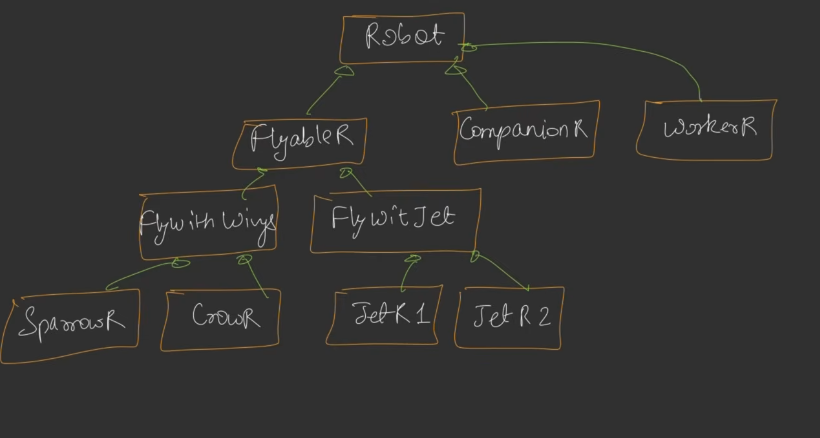 Robot
FlyableR
CompanionR
WorkerR
FlywithWings
FlywitJet
SparrowR
CrowR
JetR1
JetR2